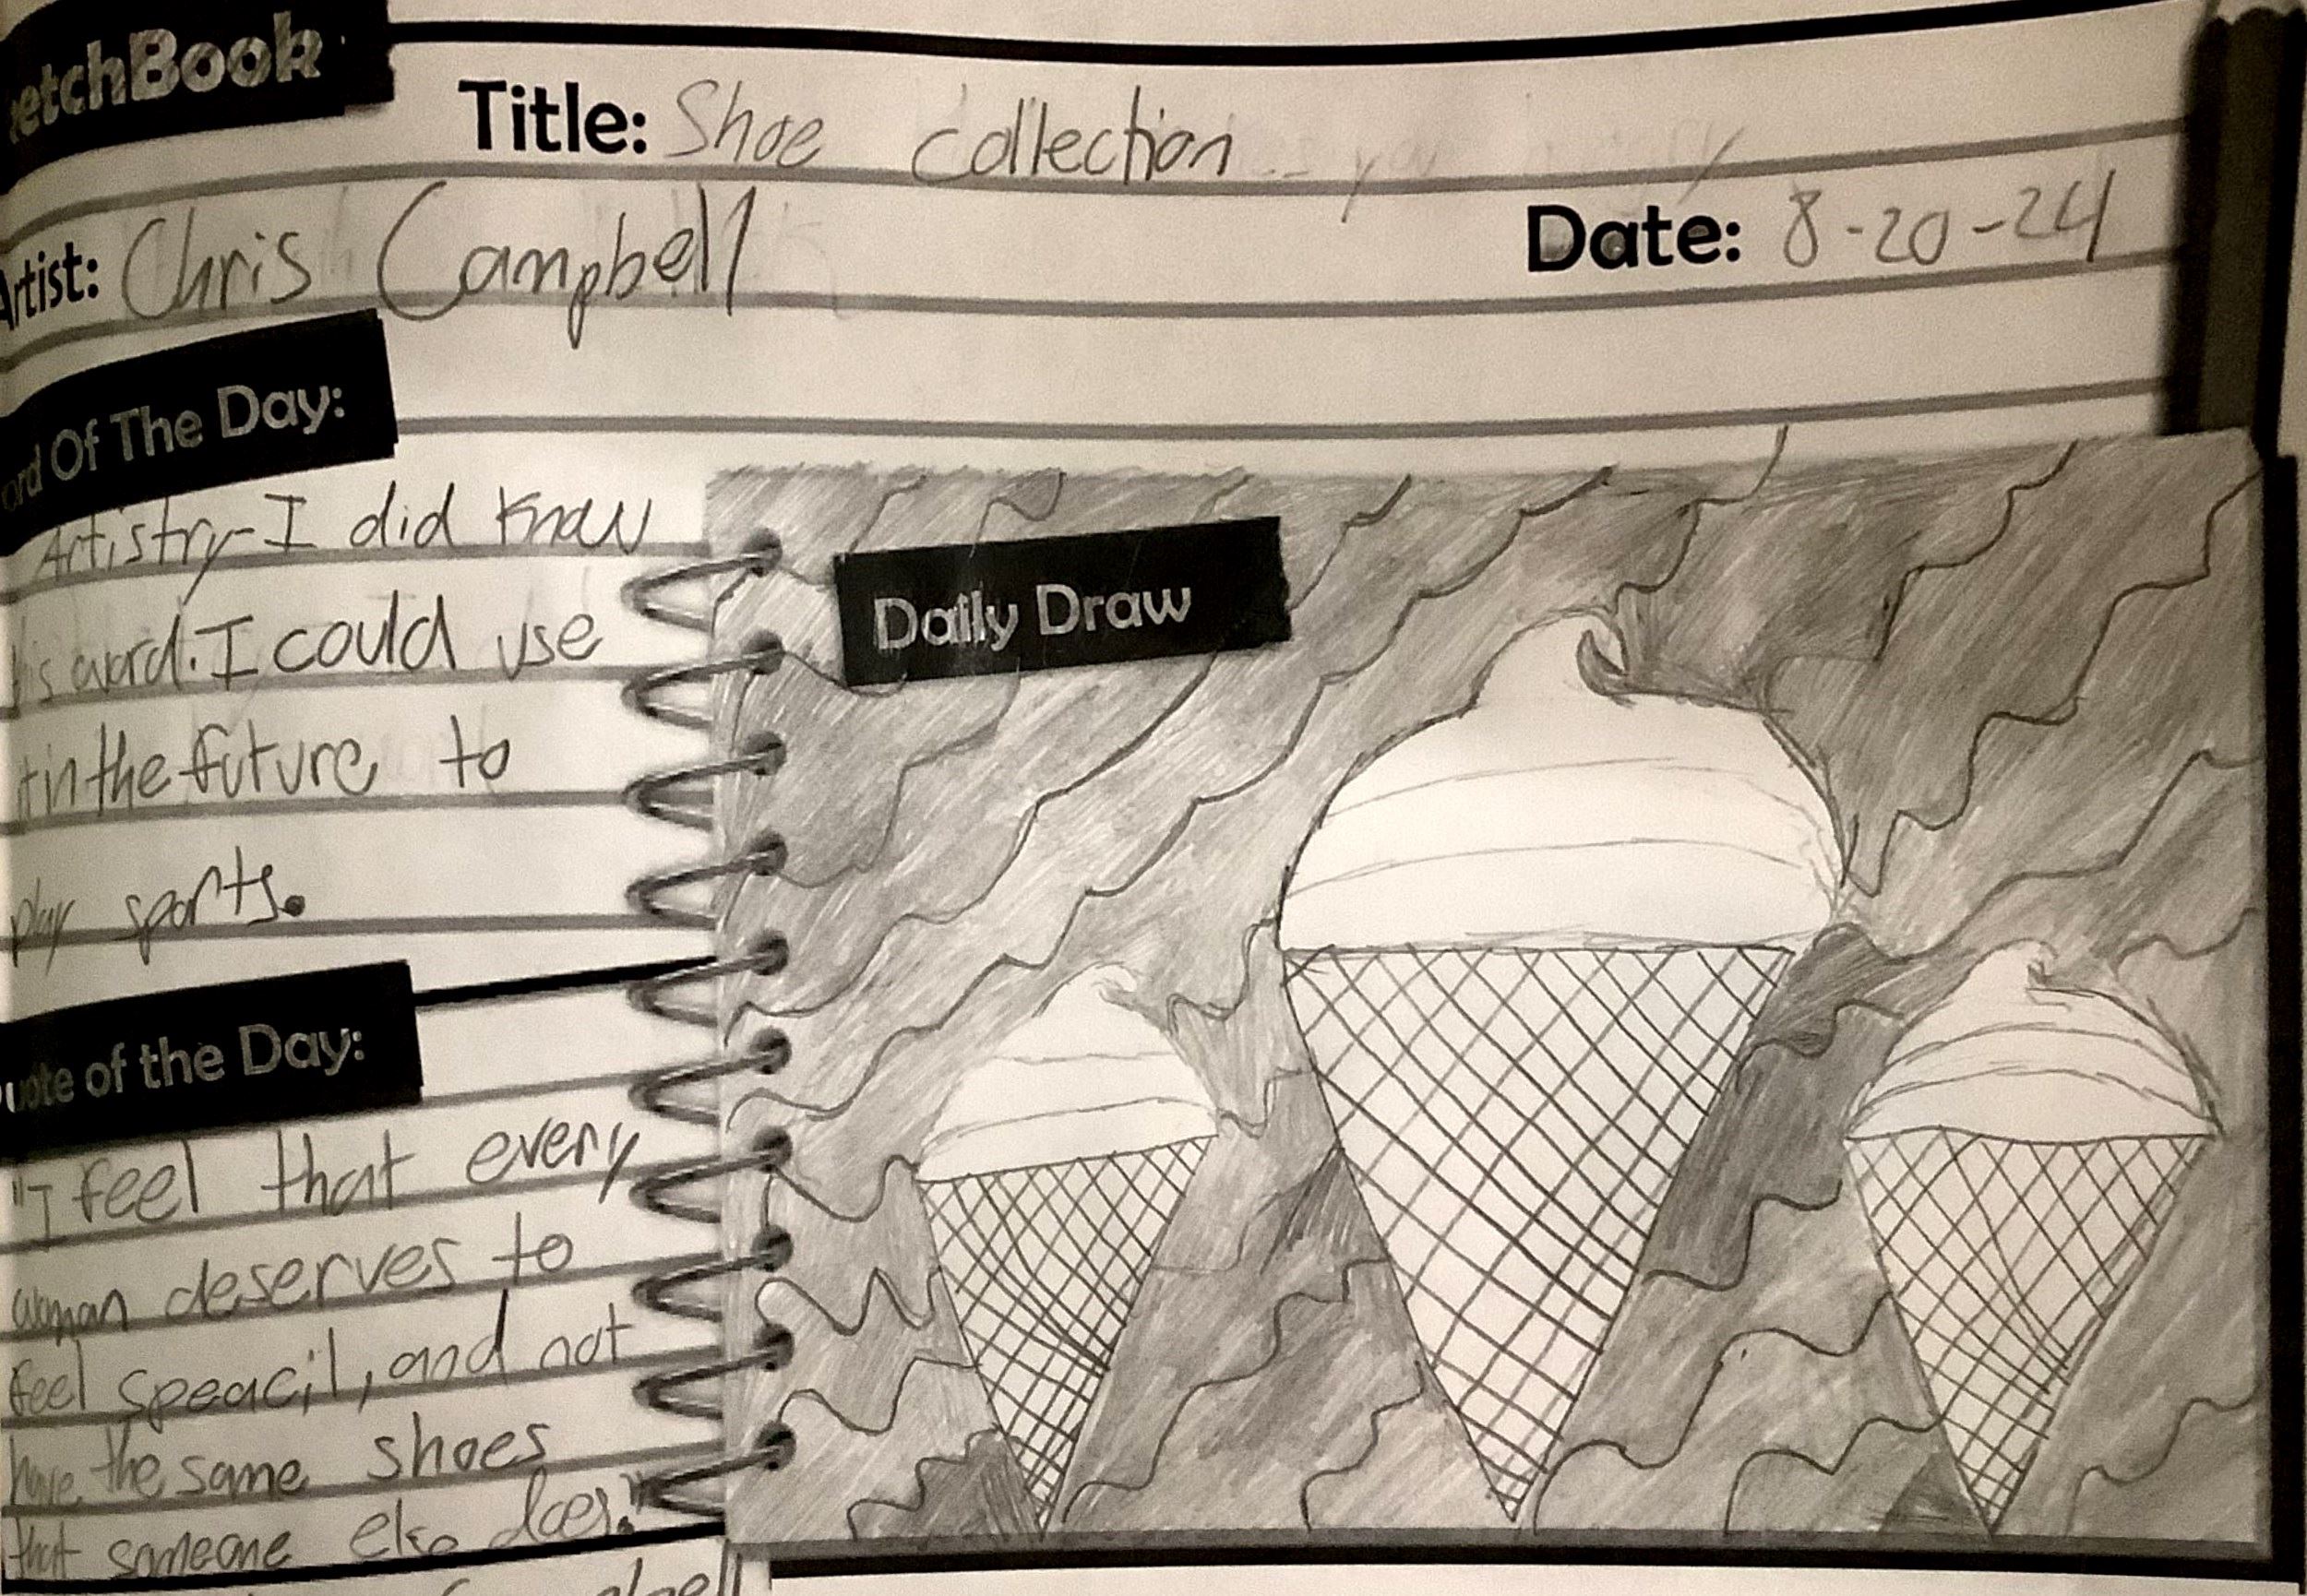 etchBook
Title: Shoe collection
Artist: Chris Campbell
Date: 8-20-24
ord Of The Day:
Artistry-I did know
is word. I could use
t in the future to
play sports.
uote of the Day:
"I feel that every
woman deserves to
feel speacil, and not
have the same shoes
that someone else does."
Daily Draw